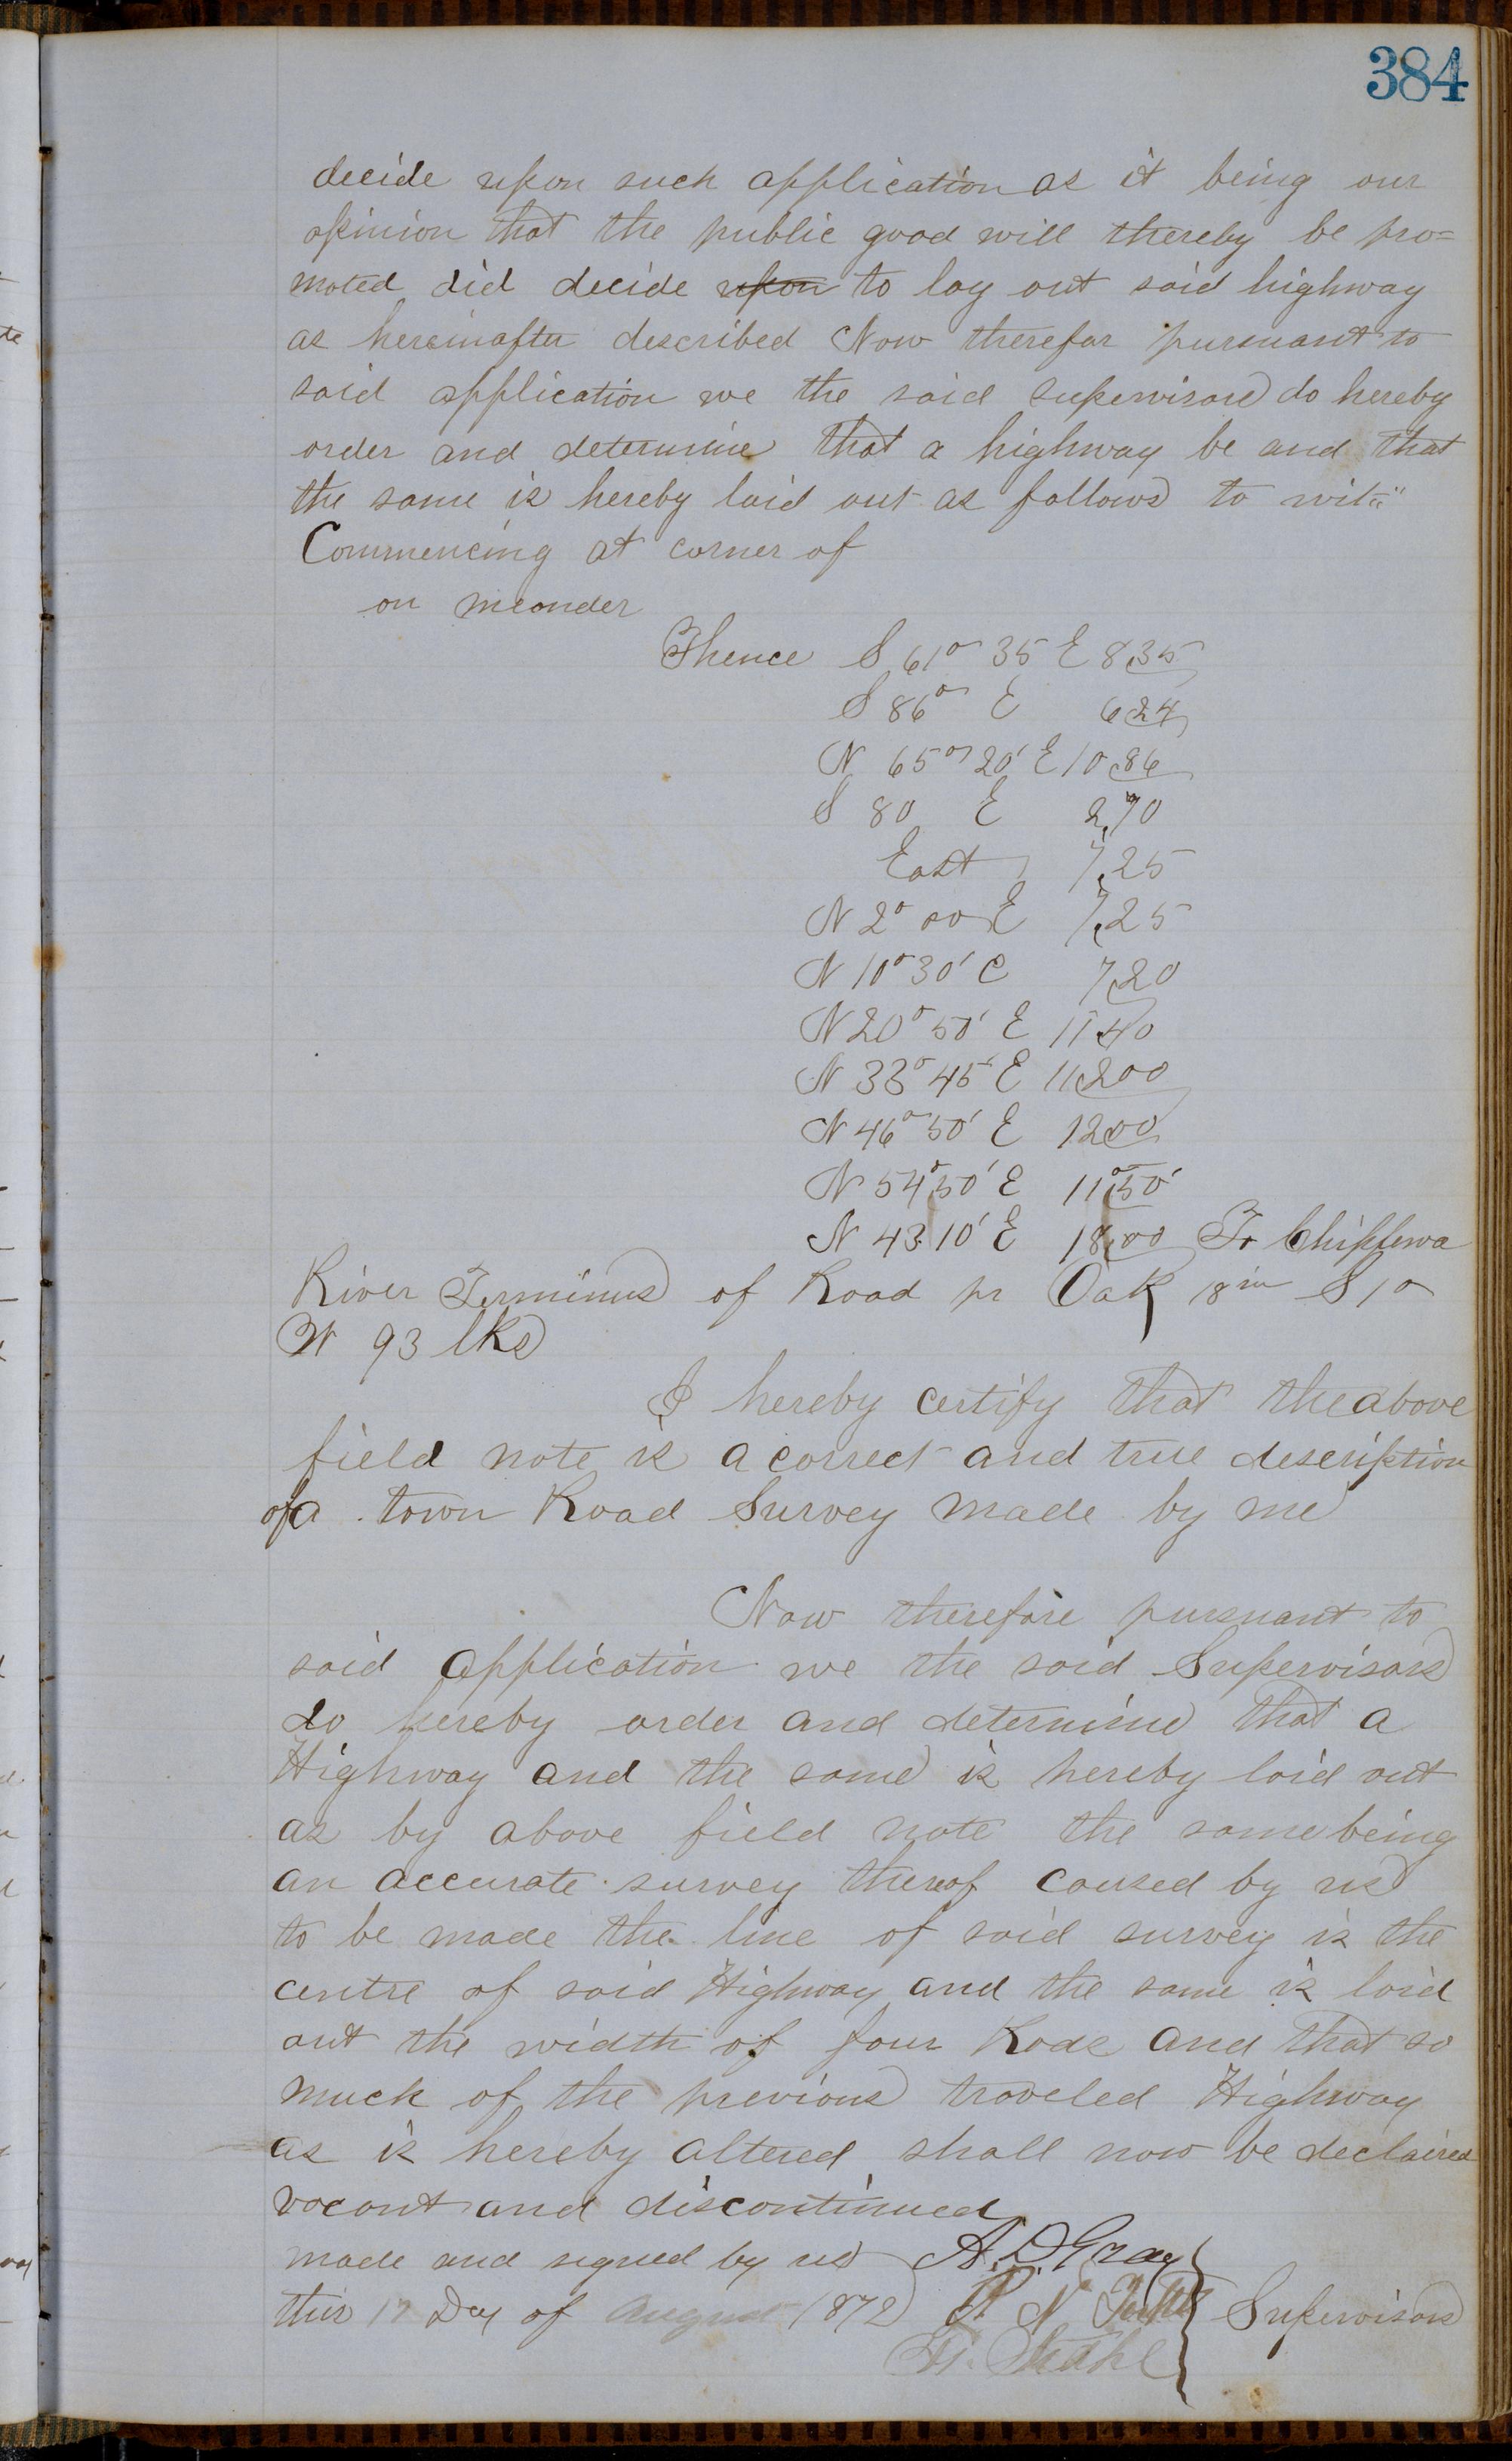 384
decide upon such application as it being our
opinion that the public good will thereby be pro=
moted did decide upon to lay out said highway
as hereinafter described Now therefor pursuant to
said application we the said supervisors do hereby
order and determine that a highway be and that
the same is hereby laid out as follows to wit:"
Commencing at corner of
on meander
Thence S 61° 35 E 8,35
S 86° E 6 24
N 65° 20' E 10,86
S 80 E 2,70
East 7,25
N 2° 00 E 7,25
N 10° 30' E 7,20
N 20° 50' E 11 40
N 33° 45' E 11,200
N 46° 50' E 12 00
N 54° 50' E 11°50'
N 43 10' E 18,00 To Chippewa
River Terminus of Road pr Oak 18 in S 1°
W 93 lks
I hereby certify that the above
field note is a correct and true description
of a town Road Survey made by me
Now therefore pursuant to
said application we the said Supervisors
do hereby order and determine that a
Highway and the same is hereby laid out
as by above field note the same being
an accurate survey thereof caused by us
to be made the line of said survey is the
centre of said Highway and the same is laid
out the width of four Rods and that so
much of the previous traveled Highway
as is hereby altered shall now be declaired
vacant and discontinued
made and signed by us A. D. Gray
this 17 Day of August 1872 P. N. Supervisors
Stahl